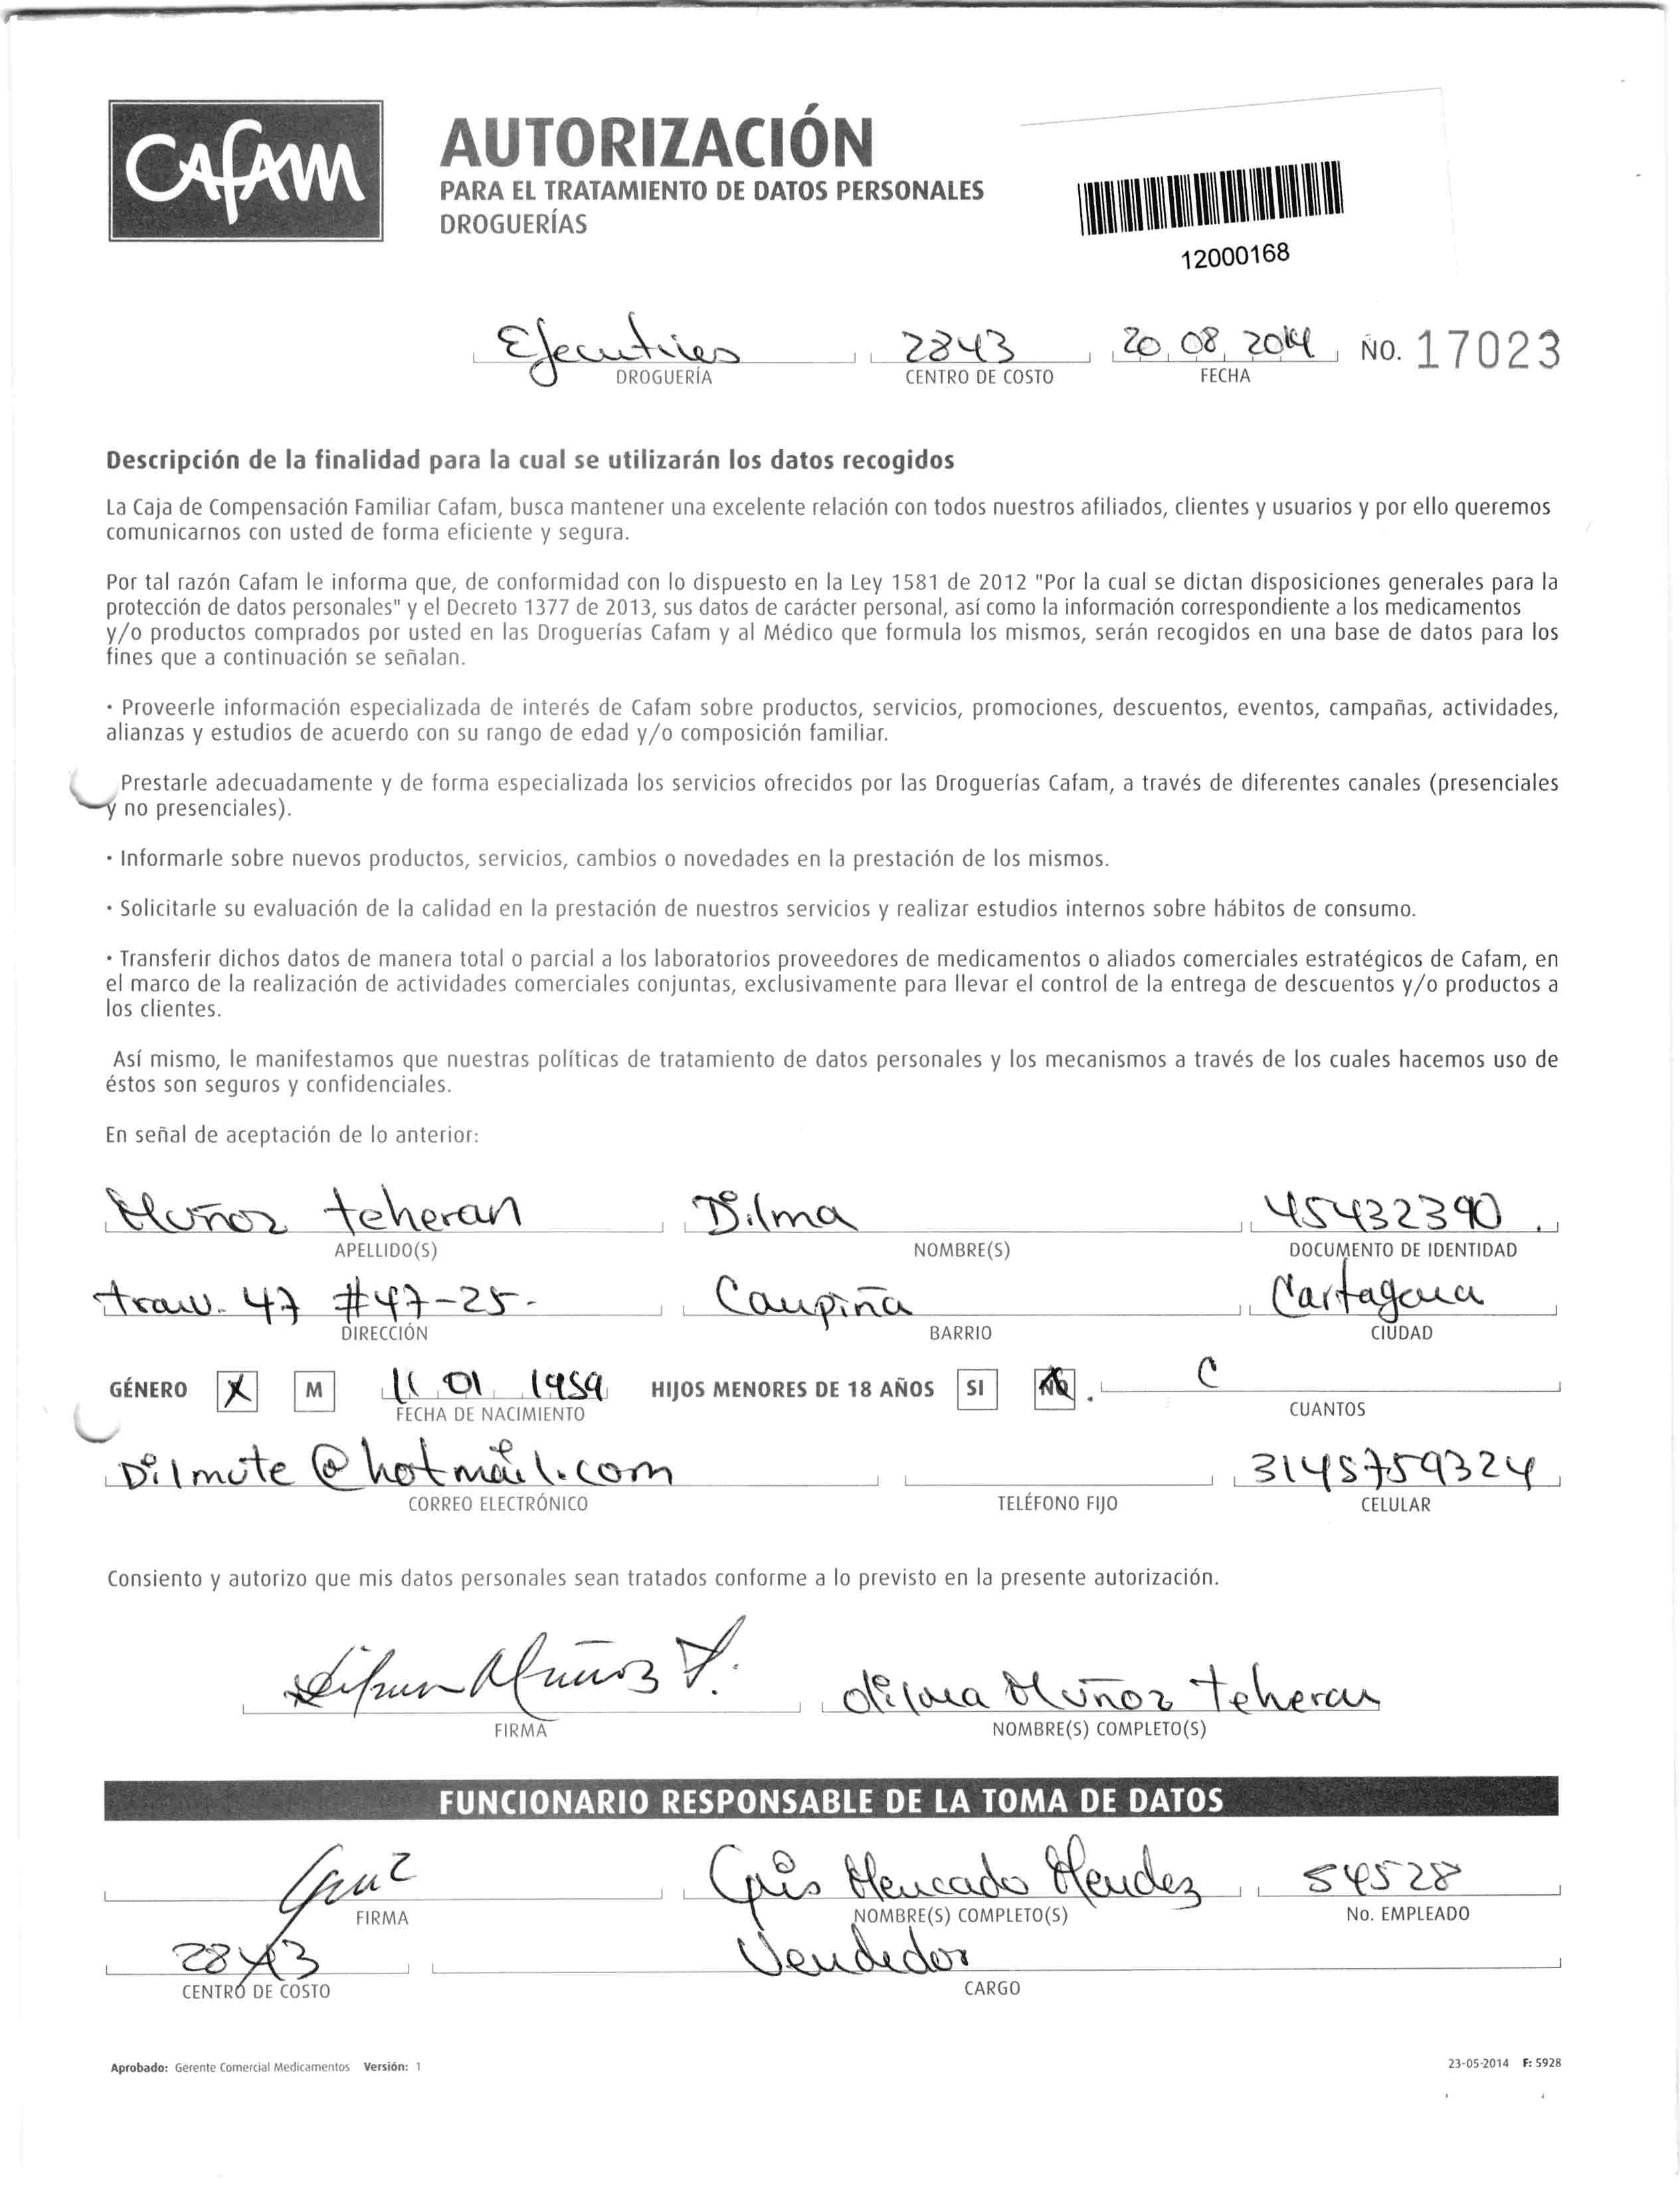 CAFAM
AUTORIZACIÓN
PARA EL TRATAMIENTO DE DATOS PERSONALES
DROGUERÍAS
12000168
2843 20 08 2014 No. 17023
DROGUERÍA CENTRO DE COSTO FECHA
Descripción de la finalidad para la cual se utilizarán los datos recogidos
La Caja de Compensación Familiar Cafam, busca mantener una excelente relación con todos nuestros afiliados, clientes y usuarios y por ello queremos
comunicarnos con usted de forma eficiente y segura.
Por tal razón Cafam le informa que, de conformidad con lo dispuesto en la Ley 1581 de 2012 "Por la cual se dictan disposiciones generales para la
protección de datos personales" y el Decreto 1377 de 2013, sus datos de carácter personal, así como la información correspondiente a los medicamentos
y/o productos comprados por usted en las Droguerías Cafam y al Médico que formula los mismos, serán recogidos en una base de datos para los
fines que a continuación se señalan.
· Proveerle información especializada de interés de Cafam sobre productos, servicios, promociones, descuentos, eventos, campañas, actividades,
alianzas y estudios de acuerdo con su rango de edad y/o composición familiar.
Prestarle adecuadamente y de forma especializada los servicios ofrecidos por las Droguerías Cafam, a través de diferentes canales (presenciales
y no presenciales).
· Informarle sobre nuevos productos, servicios, cambios o novedades en la prestación de los mismos.
· Solicitarle su evaluación de la calidad en la prestación de nuestros servicios y realizar estudios internos sobre hábitos de consumo.
· Transferir dichos datos de manera total o parcial a los laboratorios proveedores de medicamentos o aliados comerciales estratégicos de Cafam, en
el marco de la realización de actividades comerciales conjuntas, exclusivamente para llevar el control de la entrega de descuentos y/o productos a
los clientes.
Así mismo, le manifestamos que nuestras políticas de tratamiento de datos personales y los mecanismos a través de los cuales hacemos uso de
éstos son seguros y confidenciales.
En señal de aceptación de lo anterior:
Muñoz teheran Dilma 45432390
APELLIDO(S) NOMBRE(S) DOCUMENTO DE IDENTIDAD
47 #47-25- Campiña Cartagena
DIRECCIÓN BARRIO CIUDAD
GÉNERO X M 11 01 1959 HIJOS MENORES DE 18 AÑOS SI NO
FECHA DE NACIMIENTO CUANTOS
Dilmute@hotmail.com 3145759324
CORREO ELECTRÓNICO TELÉFONO FIJO CELULAR
Consiento y autorizo que mis datos personales sean tratados conforme a lo previsto en la presente autorización.
Dilma Muñoz T. dilma Muñoz teheran
FIRMA NOMBRE(S) COMPLETO(S)
FUNCIONARIO RESPONSABLE DE LA TOMA DE DATOS
Mercado Mendez 54528
FIRMA NOMBRE(S) COMPLETO(S) No. EMPLEADO
2843 Vendedor
CENTRO DE COSTO CARGO
Aprobado: Gerente Comercial Medicamentos Versión: 1 23-05-2014 F: 5928